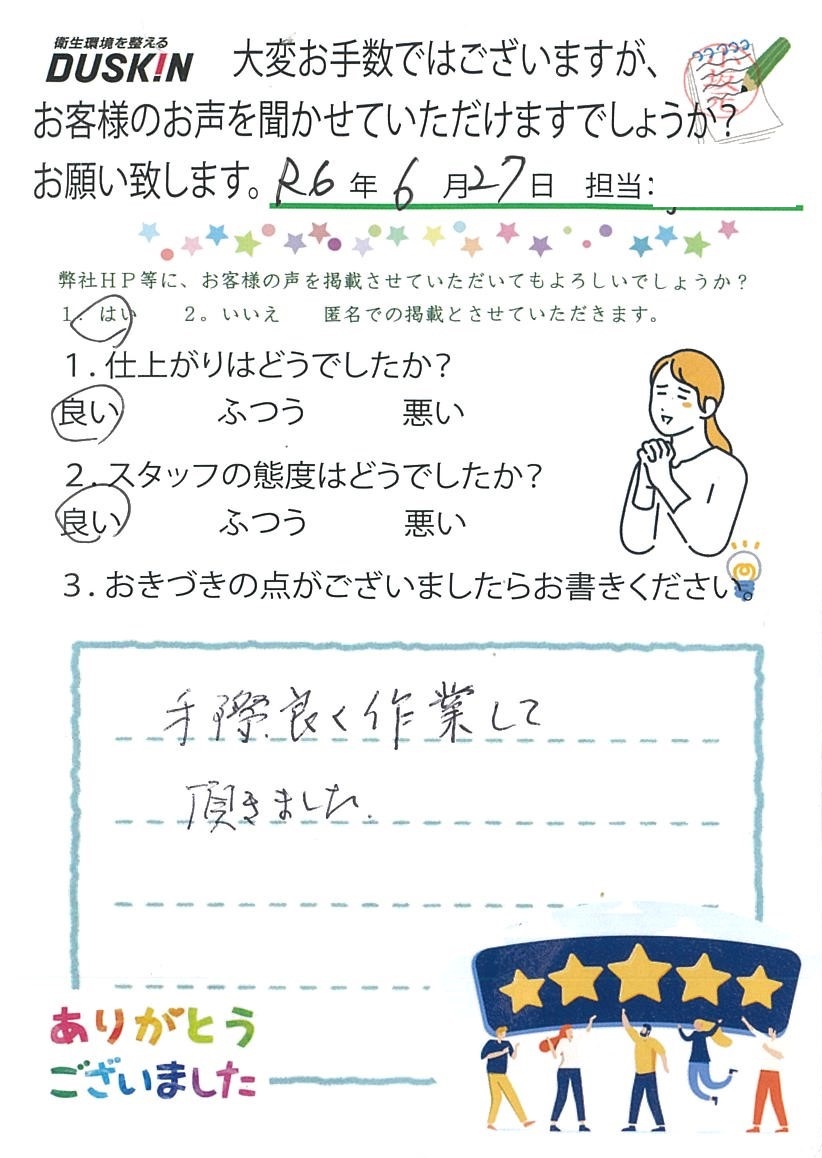 衛生環境を整える
DUSKIN 大変お手数ではございますが、
お客様のお声を聞かせていただけますでしょうか？
お願い致します。R6 年 6 月27日 担当：
弊社ＨＰ等に、お客様の声を掲載させていただいてもよろしいでしょうか？
１．はい ２。いいえ 匿名での掲載とさせていただきます。
１．仕上がりはどうでしたか？
良い ふつう 悪い
２．スタッフの態度はどうでしたか？
良い ふつう 悪い
３．おきづきの点がございましたらお書きください。
手際良く作業して
頂きました.
ありがとう
ございました